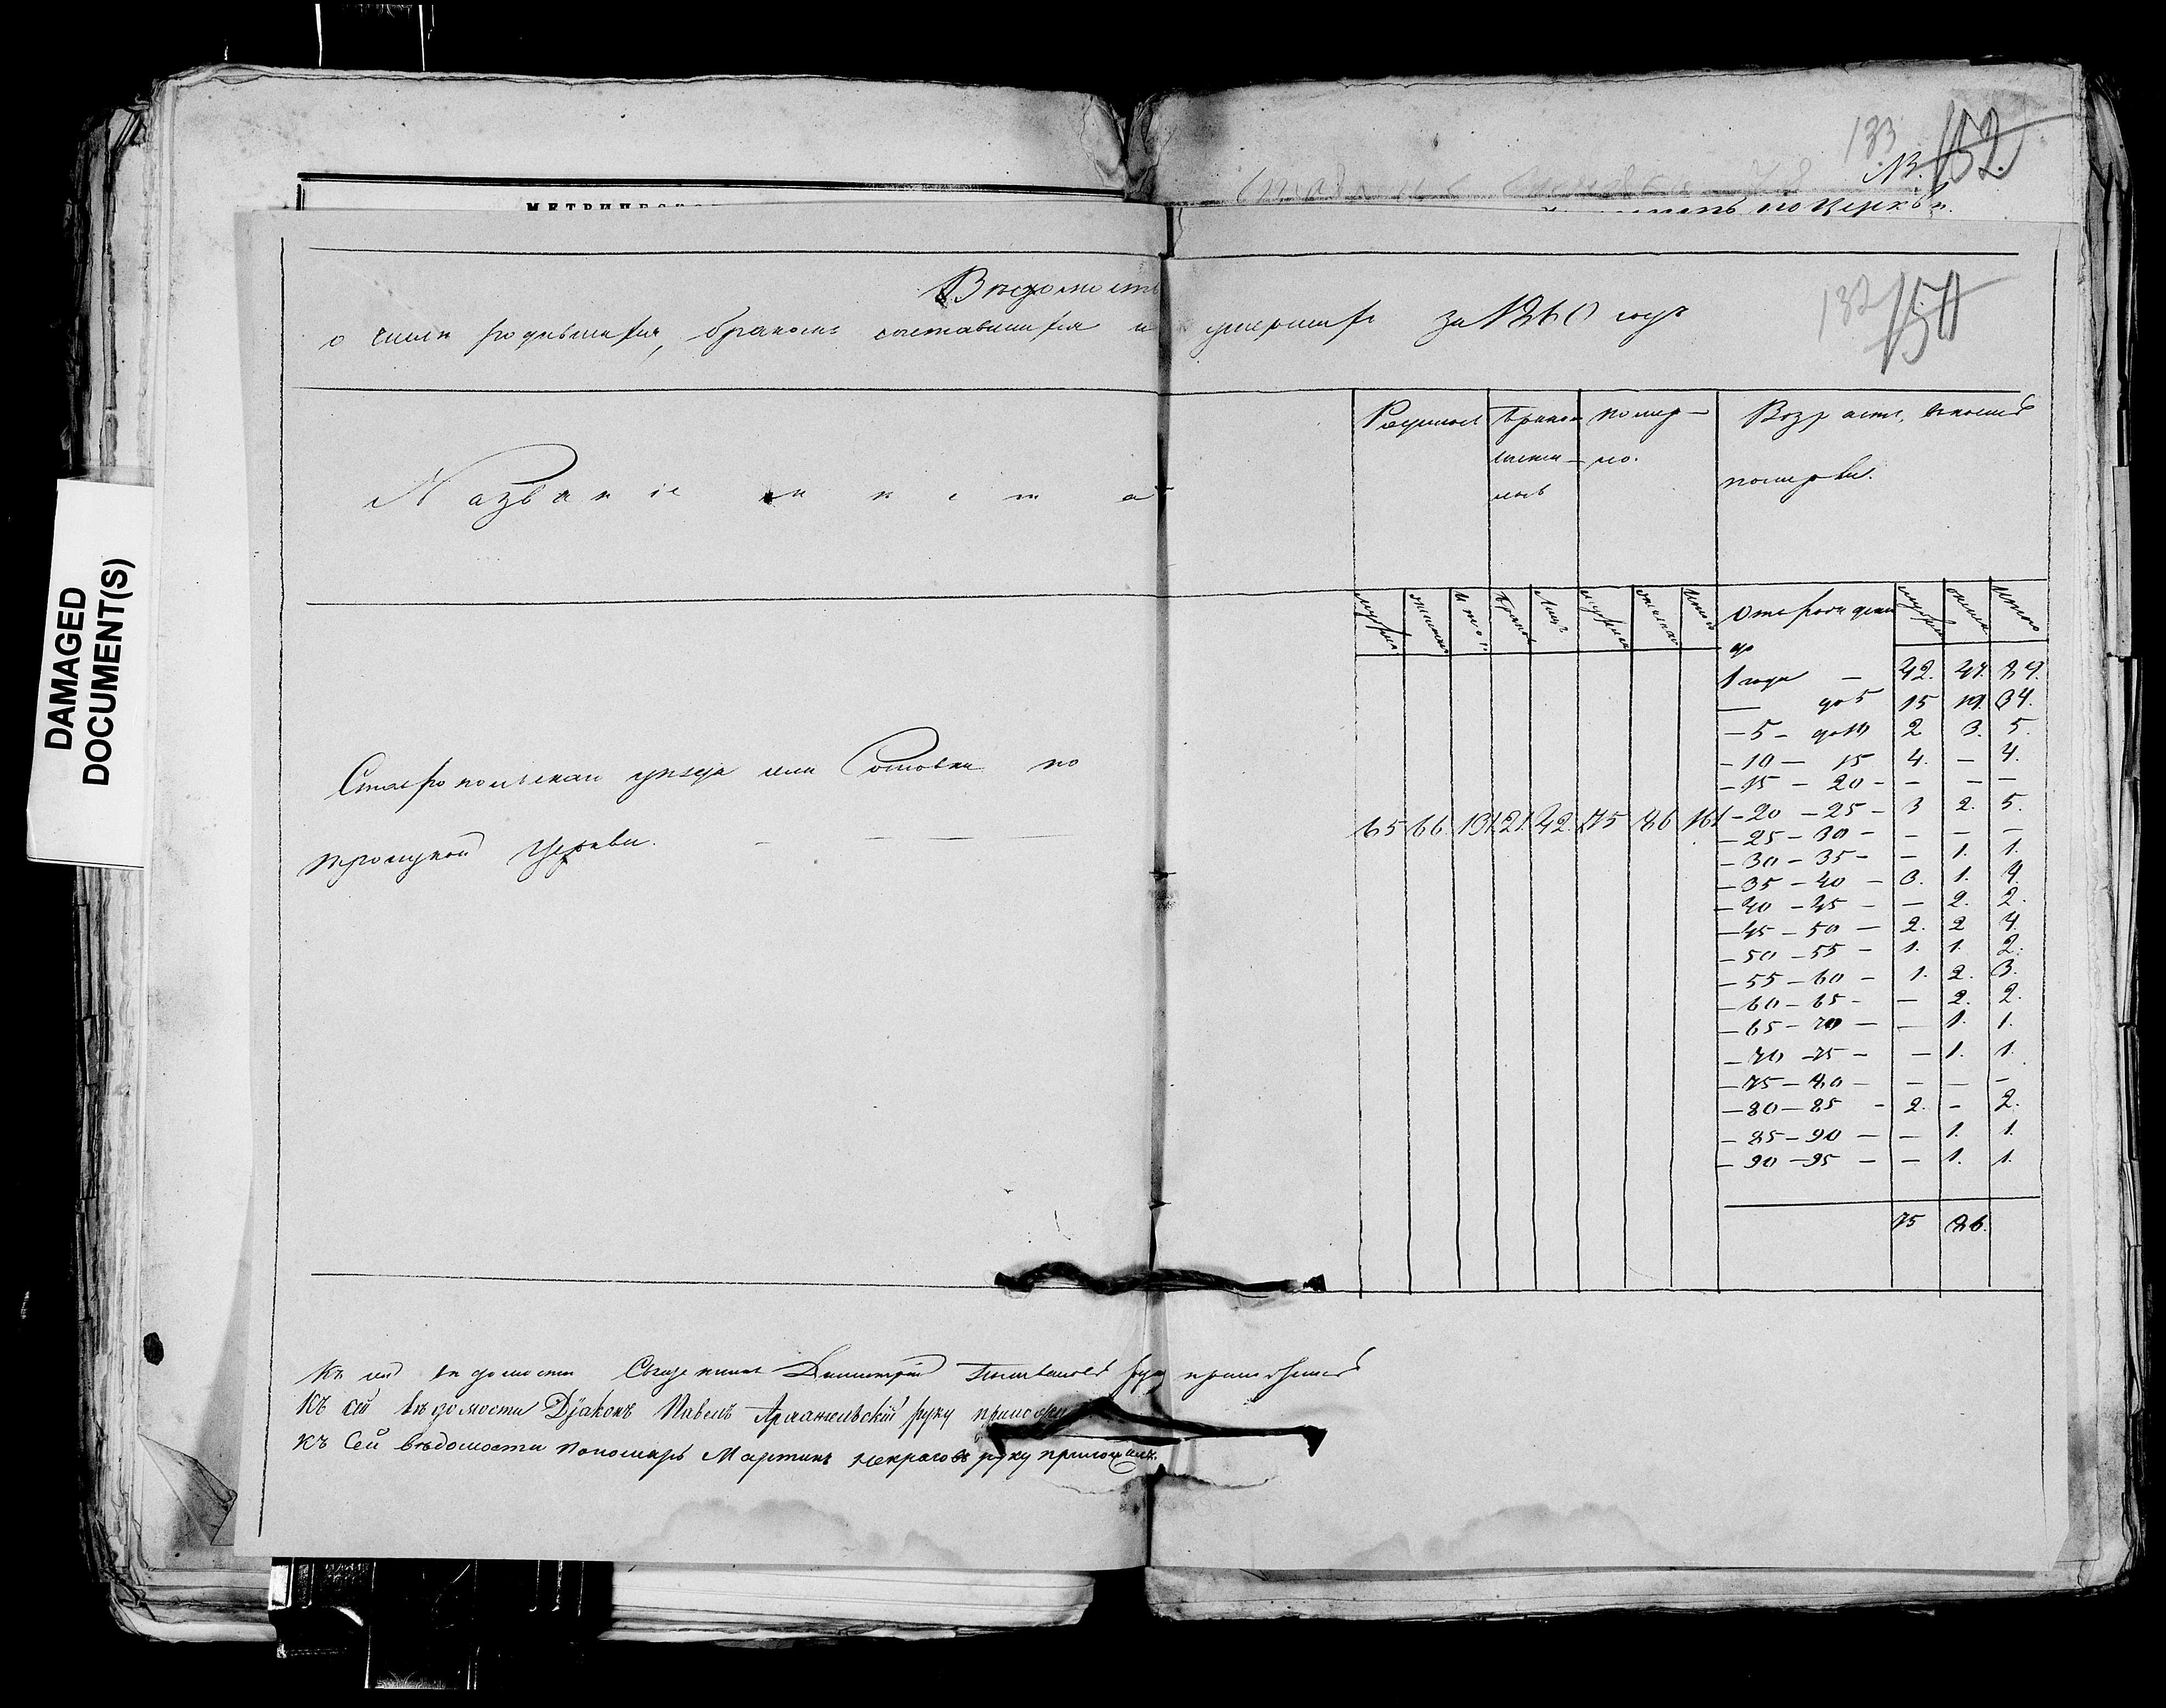 DAMAGED
DOCUMENT(S)
133
152
по Церкви.
132
150
Вѣдомость
о числѣ родившихся, браковъ составшихся и умершихъ за 1860 годъ
Названіе мѣста
Родилось
Браковъ
помер-
ло.
Возрастъ
померли.
мужеска
женска
Итого
Браковъ
Лицъ
мужеска
женска
Итого
Отъ рожденія
до
мужеска
женска
Итого
1 года — 42. 47. 89.
— до 5 15 19. 34.
— 5 — до 10 2 3. 5.
— 10 — 15 4. — 4.
— 15 — 20 — — — —
— 20 — 25 — 3 2. 5.
— 25 — 30 — — — —
— 30 — 35 — — 1. 1.
— 35 — 40 — 3. 1. 4.
— 40 — 45 — — 2. 2.
— 45 — 50 — 2. 2 4.
— 50 — 55 — 1. 1. 2.
— 55 — 60 — 1. 2. 3.
— 60 — 65 — — 2. 2.
— 65 — 70 — — 1. 1.
— 70 — 75 — — 1. 1.
— 75 — 80 — — — —
— 80 — 85 — 2. — 2.
— 85 — 90 — — 1. 1.
— 90 — 95 — — 1. 1.
75 86.
Ставропольскаго уѣзда села по
Троицкой Церкви.
65 66 131. 21. 42. 75 86 161
Къ сей вѣдомости Священникъ Димитрій руку приложилъ
Къ сей вѣдомости Діаконъ Павелъ Архангельскій руку
Къ Сей вѣдомости Пономарь Мартинъ Некрасовъ руку приложилъ.